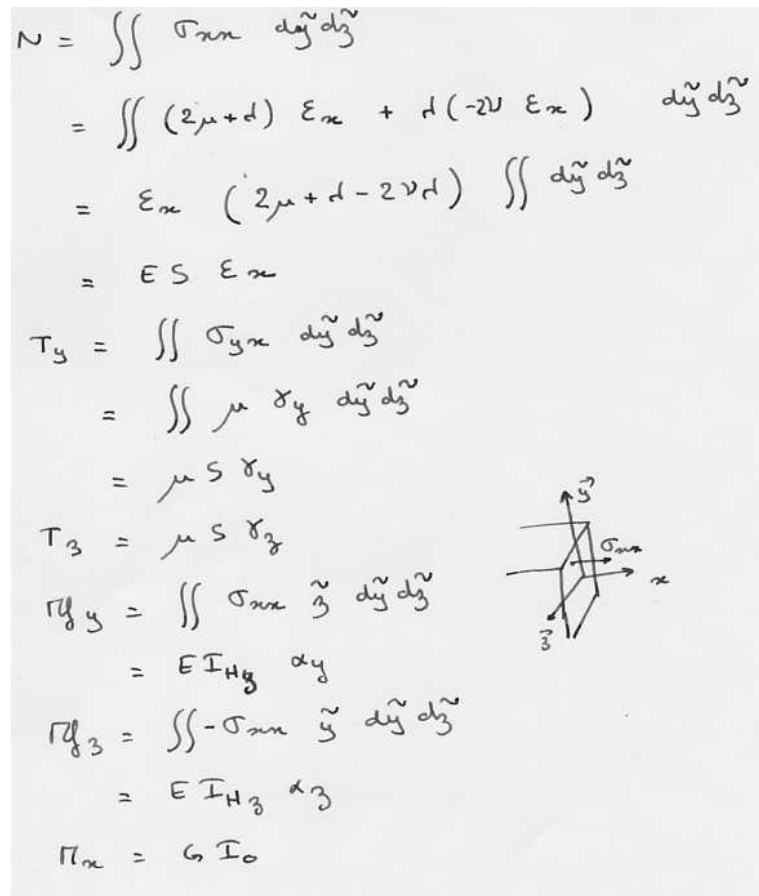 N = ∬ σxx dỹ dz̃
= ∬ (2μ+λ) εx + λ(-2ν εx) dỹ dz̃
= εx (2μ+λ-2νλ) ∬ dỹ dz̃
= ES εx
Ty = ∬ σyx dỹ dz̃
= ∬ μ γy dỹ dz̃
= μ S γy
Tz = μ S γz
Mfy = ∬ σxx z̃ dỹ dz̃
= E IHy αy
Mfz = ∬ -σxx ỹ dỹ dz̃
= E IHz αz
Mx = G Io
y⃗
σxx
x
z⃗